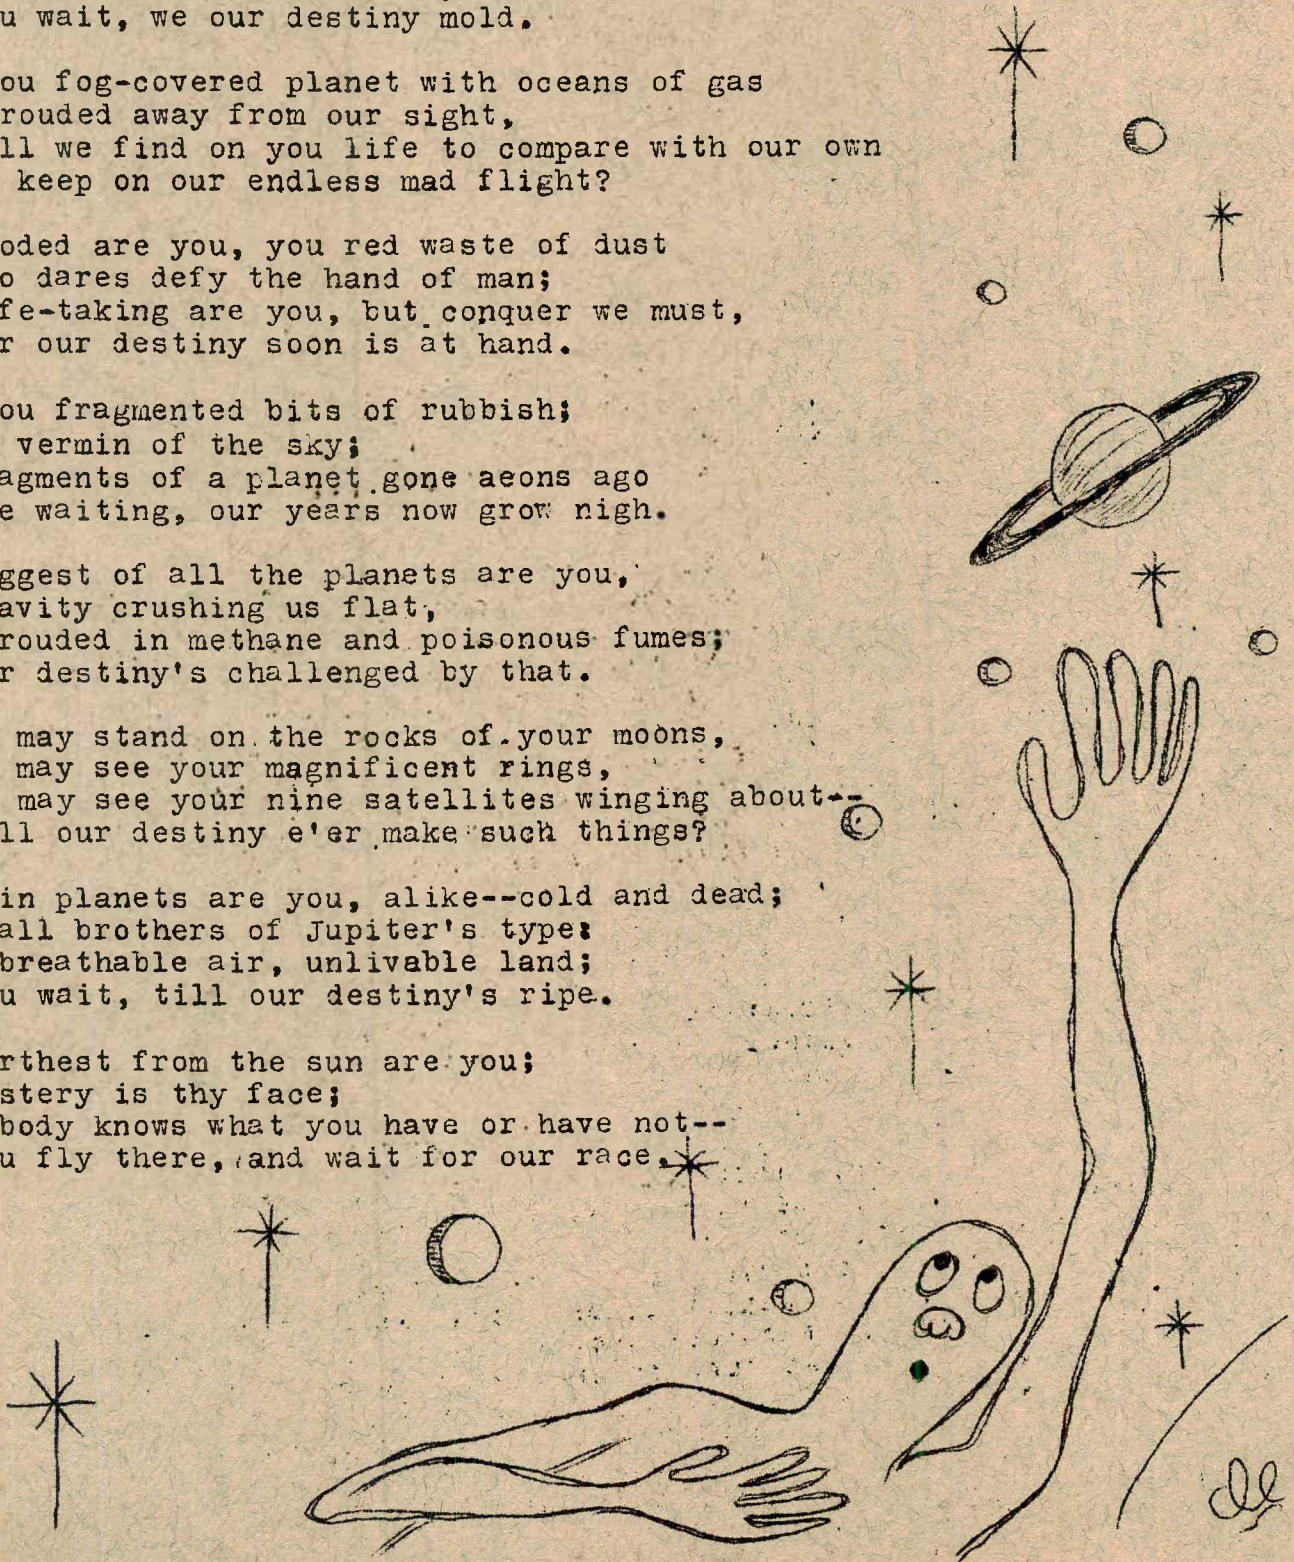 u wait, we our destiny mold.
ou fog-covered planet with oceans of gas
rouded away from our sight,
ll we find on you life to compare with our own
keep on our endless mad flight?
oded are you, you red waste of dust
o dares defy the hand of man;
fe-taking are you, but conquer we must,
r our destiny soon is at hand.
ou fragmented bits of rubbish;
vermin of the sky;
agments of a planet gone aeons ago
e waiting, our years now grow nigh.
ggest of all the planets are you,
avity crushing us flat,
rouded in methane and poisonous fumes;
r destiny's challenged by that.
may stand on the rocks of your moons,
may see your magnificent rings,
may see your nine satellites winging about--
ll our destiny e'er make such things?
in planets are you, alike--cold and dead;
all brothers of Jupiter's type:
breathable air, unlivable land;
u wait, till our destiny's ripe.
rthest from the sun are you;
stery is thy face;
body knows what you have or have not--
u fly there, and wait for our race.